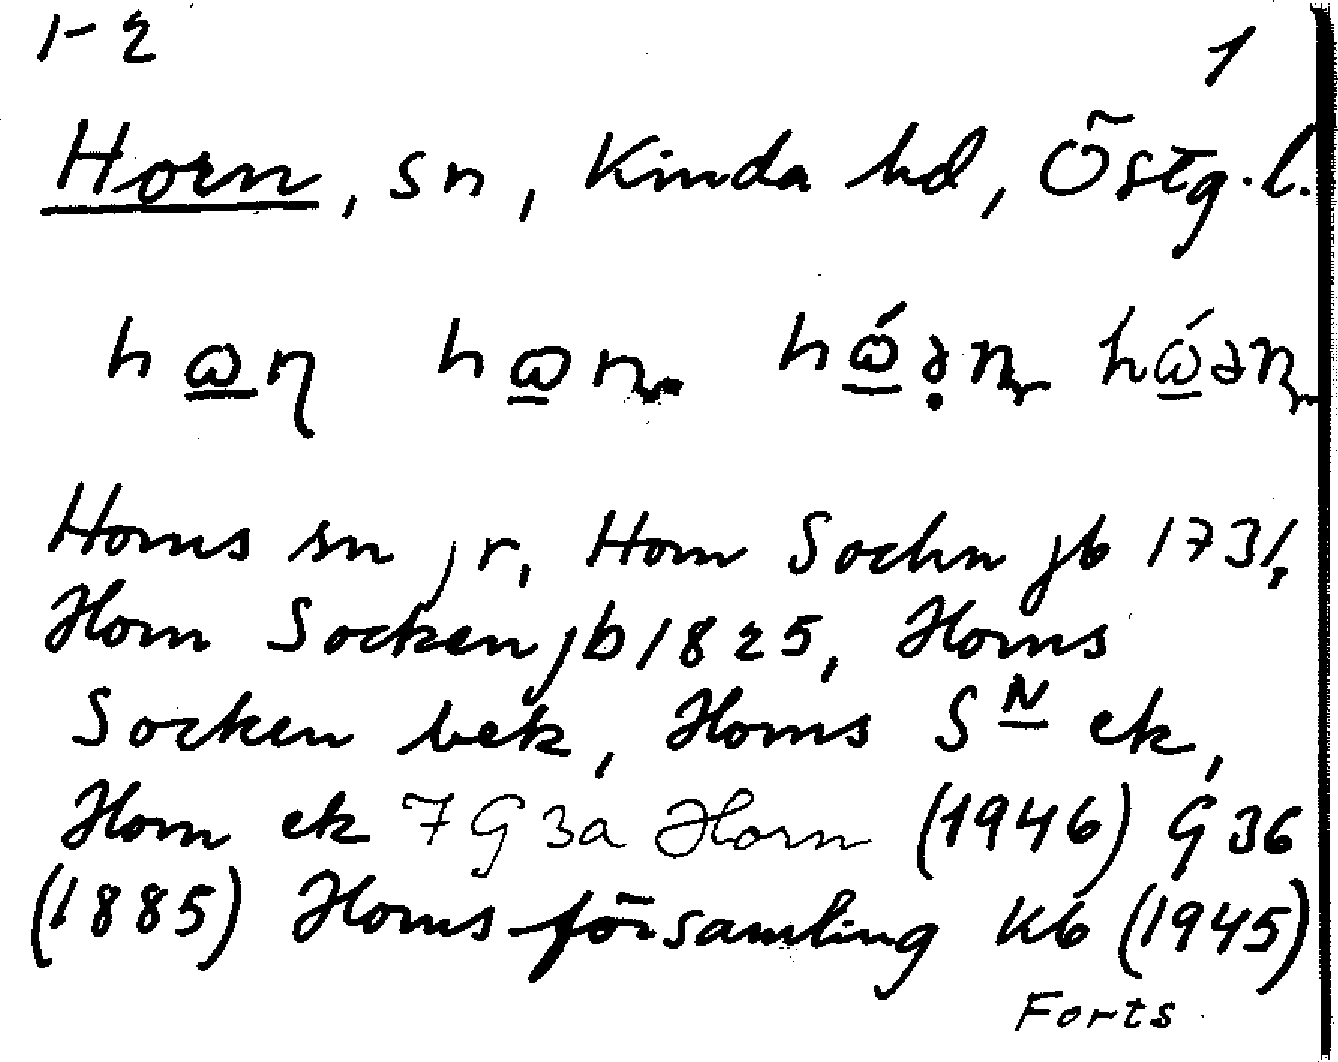 1-2 1
Horn, sn, Kinda hd, Östg.l.
hɷ̱ɳ hɷ̱n hɷ̱́ən hɷ̱́ən
Horns sn jr, Horn Sochn jb 1731,
Horn Socken jb 1825, Horns
Socken bek, Horns S<sup>N</sup> ek,
Horn ek 7G3a Horn (1946) G36
(1885) Horns församling kb (1945)
Forts